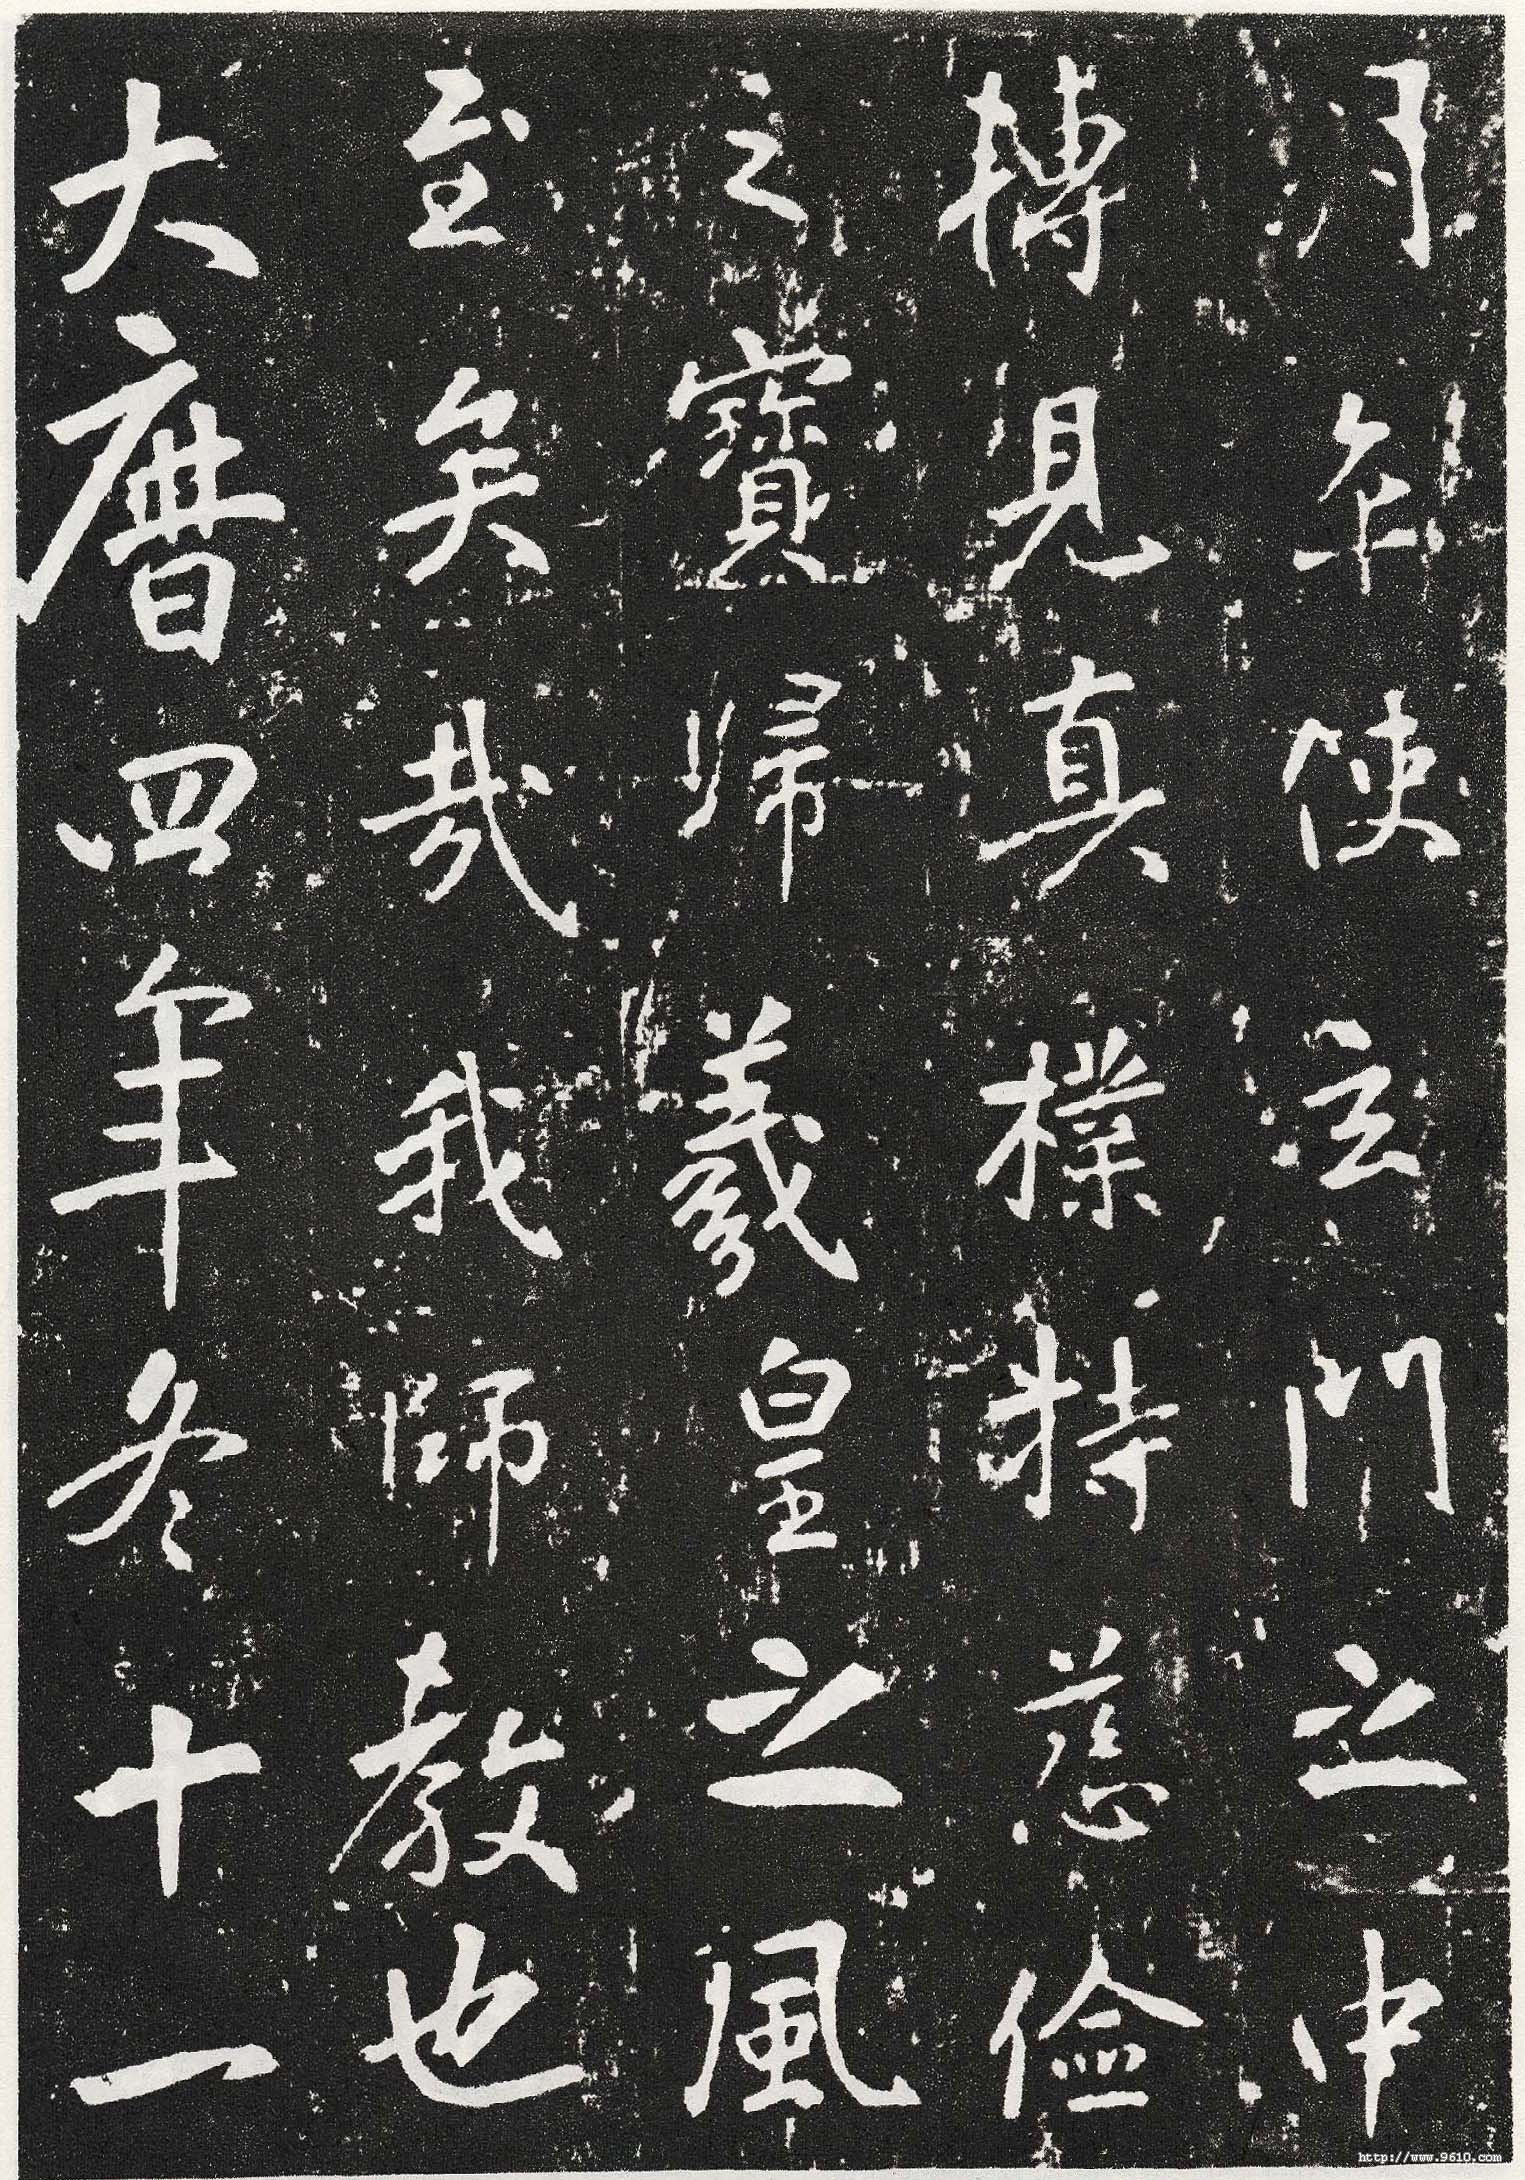 月乍使玄門之中
轉見真樸持慈儉
之寶歸羲皇之風
至矣哉我師教也
大曆四年冬十一
http://www.9610.com